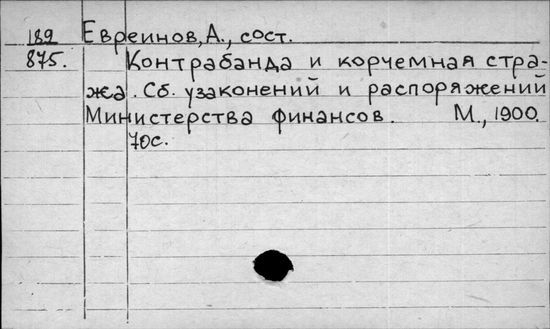 189 Евреинов, А., сост.
875. Контрабанда и корчемная стра-
жа. Сб. узаконений и распоряжений
Министерства финансов. М., 1900.
70с.